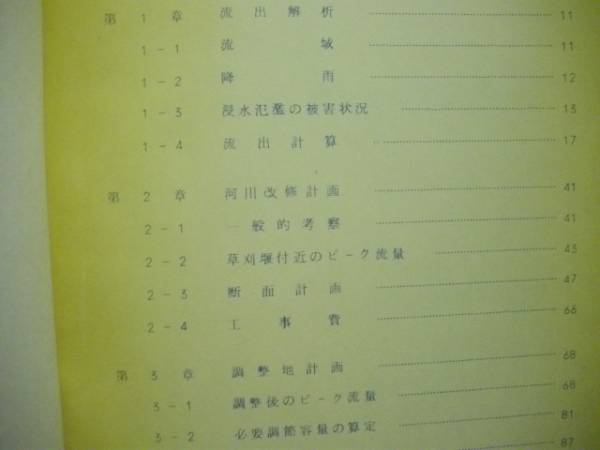 第 1 章 流出解析 11
1-1 流域 11
1-2 降雨 12
1-3 浸水氾濫の被害状況 13
1-4 流出計算 17
第 2 章 河川改修計画 41
2-1 一般的考察 41
2-2 草刈堰付近のピーク流量 43
2-3 断面計画 47
2-4 工事費 66
第 3 章 調整地計画 68
3-1 調整後のピーク流量 68
3-2 必要調節容量の算定 81
87